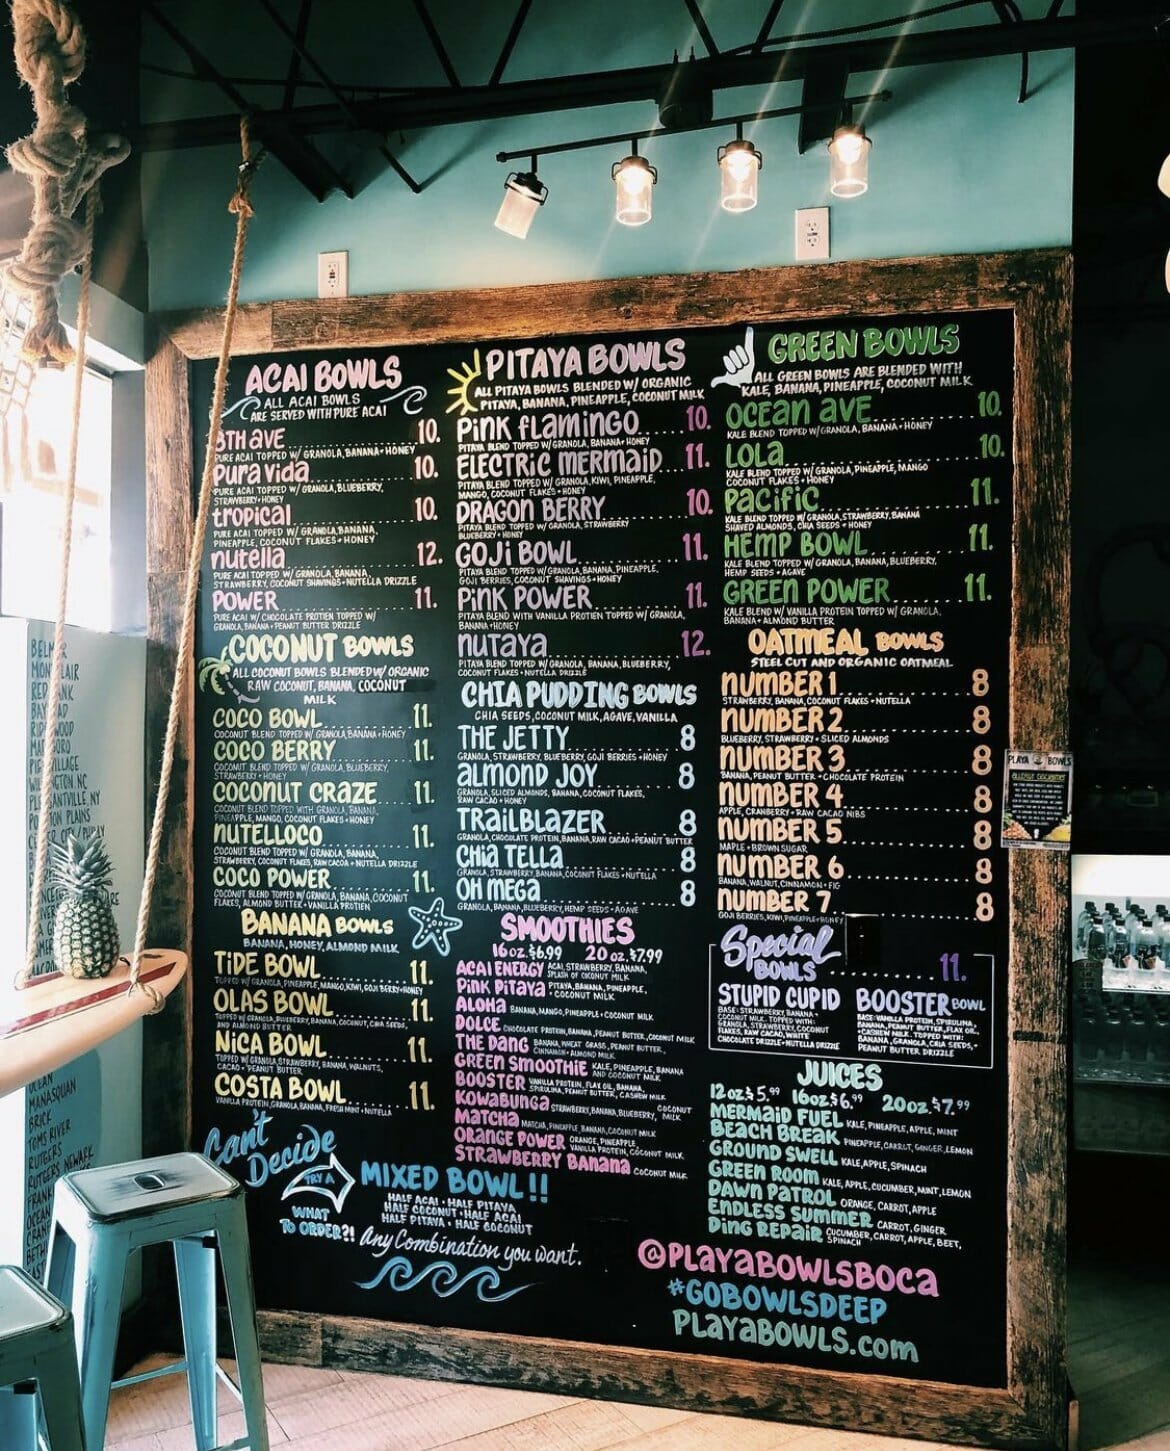 ACAI BOWLS
ALL ACAI BOWLS
ARE SERVED WITH PURE ACAI
8TH AVE 10.
PURE ACAI TOPPED W/ GRANOLA, BANANA + HONEY
PURA VIDA 10.
PURE ACAI TOPPED W/ GRANOLA, BLUEBERRY,
STRAWBERRY + HONEY
TROPICAL 10.
PURE ACAI TOPPED W/ GRANOLA, BANANA,
PINEAPPLE, COCONUT FLAKES + HONEY
NUTELLA 12.
PURE ACAI TOPPED W/ GRANOLA, BANANA,
STRAWBERRY, COCONUT SHAVINGS + NUTELLA DRIZZLE
POWER 11.
PURE ACAI W/ CHOCOLATE PROTIEN TOPPED W/
GRANOLA, BANANA + PEANUT BUTTER DRIZZLE
COCONUT BOWLS
ALL COCONUT BOWLS BLENDED W/ ORGANIC
RAW COCONUT, BANANA, COCONUT
MILK
COCO BOWL 11.
COCONUT BLEND TOPPED W/ GRANOLA, BANANA + HONEY
COCO BERRY 11.
COCONUT BLEND TOPPED W/ GRANOLA, BLUEBERRY,
STRAWBERRY + HONEY
COCONUT CRAZE 11.
COCONUT BLEND TOPPED WITH GRANOLA, BANANA
PINEAPPLE, MANGO, COCONUT FLAKES + HONEY
NUTELLOCO 11.
COCONUT BLEND TOPPED W/ GRANOLA, BANANA,
STRAWBERRY, COCONUT FLAKES, RAW CACAO + NUTELLA DRIZZLE
COCO POWER 11.
COCONUT BLEND TOPPED W/ GRANOLA, BANANA, COCONUT
FLAKES, ALMOND BUTTER + VANILLA PROTIEN
BANANA BOWLS
BANANA, HONEY, ALMOND MILK
TIDE BOWL 11.
TOPPED W/ GRANOLA, PINEAPPLE, MANGO, KIWI, GOJI BERRY + HONEY
OLAS BOWL 11.
TOPPED W/ GRANOLA, BLUEBERRY, BANANA, COCONUT, CHIA SEEDS,
AND ALMOND BUTTER
NICA BOWL 11.
TOPPED W/ GRANOLA, STRAWBERRY, BANANA, WALNUTS,
CACAO + PEANUT BUTTER
COSTA BOWL 11.
VANILLA PROTEIN, GRANOLA, BANANA, FRESH MINT + NUTELLA
Can't Decide
WHAT
TO ORDER?!
TRY A
MIXED BOWL!!
HALF ACAI + HALF PITAYA
HALF COCONUT + HALF ACAI
HALF PITAYA + HALF COCONUT
Any Combination you want.
PITAYA BOWLS
ALL PITAYA BOWLS BLENDED W/ ORGANIC
PITAYA, BANANA, PINEAPPLE, COCONUT MILK
PINK FLAMINGO 10.
PITAYA BLEND TOPPED W/ GRANOLA, BANANA + HONEY
ELECTRIC MERMAID 11.
PITAYA BLEND TOPPED W/ GRANOLA, KIWI, PINEAPPLE,
MANGO, COCONUT FLAKES + HONEY
DRAGON BERRY 10.
PITAYA BLEND TOPPED W/ GRANOLA, STRAWBERRY
BLUEBERRY + HONEY
GOJI BOWL 11.
PITAYA BLEND TOPPED W/ GRANOLA, BANANA, PINEAPPLE,
GOJI BERRIES, COCONUT SHAVINGS + HONEY
PINK POWER 11.
PITAYA BLEND WITH VANILLA PROTIEN TOPPED W/ GRANOLA,
BANANA + HONEY
NUTAYA 12.
PITAYA BLEND TOPPED W/ GRANOLA, BANANA, BLUEBERRY,
COCONUT FLAKES + NUTELLA DRIZZLE
CHIA PUDDING BOWLS
CHIA SEEDS, COCONUT MILK, AGAVE, VANILLA
THE JETTY 8
GRANOLA, STRAWBERRY, BLUEBERRY, GOJI BERRIES + HONEY
ALMOND JOY 8
GRANOLA, SLICED ALMONDS, BANANA, COCONUT FLAKES,
RAW CACAO + HONEY
TRAILBLAZER 8
GRANOLA, CHOCOLATE PROTEIN, BANANA, RAW CACAO + PEANUT BUTTER
CHIA TELLA 8
GRANOLA, STRAWBERRY, BANANA, COCONUT FLAKES + NUTELLA
OH MEGA 8
GRANOLA, BANANA, BLUEBERRY, HEMP SEEDS + AGAVE
SMOOTHIES
16 oz. $6.99 20 oz. $7.99
ACAI ENERGY ACAI, STRAWBERRY, BANANA,
SPLASH OF COCONUT MILK
PINK PITAYA PITAYA, BANANA, PINEAPPLE,
+ COCONUT MILK
ALOHA BANANA, MANGO, PINEAPPLE + COCONUT MILK
DOLCE CHOCOLATE PROTEIN, BANANA, PEANUT BUTTER, COCONUT MILK
THE DANG BANANA, WHEAT GRASS, PEANUT BUTTER,
CINNAMON + ALMOND MILK
GREEN SMOOTHIE KALE, PINEAPPLE, BANANA
AND COCONUT MILK
BOOSTER VANILLA PROTEIN, FLAX OIL, BANANA,
SPIRULINA, PEANUT BUTTER, CASHEW MILK
KOWABUNGA STRAWBERRY, BANANA, BLUEBERRY, COCONUT
MILK
MATCHA MATCHA, PINEAPPLE, BANANA, COCONUT MILK
ORANGE POWER ORANGE, PINEAPPLE,
VANILLA PROTEIN, COCONUT MILK
STRAWBERRY BANANA COCONUT MILK
GREEN BOWLS
ALL GREEN BOWLS ARE BLENDED WITH
KALE, BANANA, PINEAPPLE, COCONUT MILK
OCEAN AVE 10.
KALE BLEND TOPPED W/ GRANOLA, BANANA + HONEY
LOLA 10.
KALE BLEND TOPPED W/ GRANOLA, PINEAPPLE, MANGO
COCONUT FLAKES + HONEY
PACIFIC 11.
KALE BLEND TOPPED W/ GRANOLA, STRAWBERRY, BANANA
SHAVED ALMONDS, CHIA SEEDS + HONEY
HEMP BOWL 11.
KALE BLEND TOPPED W/ GRANOLA, BANANA, BLUEBERRY,
HEMP SEEDS + AGAVE
GREEN POWER 11.
KALE BLEND W/ VANILLA PROTEIN TOPPED W/ GRANOLA,
BANANA + ALMOND BUTTER
OATMEAL BOWLS
STEEL CUT AND ORGANIC OATMEAL
NUMBER 1 8
STRAWBERRY, BANANA, COCONUT FLAKES + NUTELLA
NUMBER 2 8
BLUEBERRY, STRAWBERRY + SLICED ALMONDS
NUMBER 3 8
BANANA, PEANUT BUTTER + CHOCOLATE PROTEIN
NUMBER 4 8
APPLE, CRANBERRY + RAW CACAO NIBS
NUMBER 5 8
MAPLE + BROWN SUGAR
NUMBER 6 8
BANANA, WALNUT, CINNAMON + FIG
NUMBER 7 8
GOJI BERRIES, KIWI, PINEAPPLE + HONEY
Special
BOWLS 11.
STUPID CUPID
BASE: STRAWBERRY, BANANA +
COCONUT MILK. TOPPED WITH:
GRANOLA, STRAWBERRY, COCONUT
FLAKES, RAW CACAO, WHITE
CHOCOLATE DRIZZLE + NUTELLA DRIZZLE
BOOSTER BOWL
BASE: VANILLA PROTEIN, SPIRULINA,
BANANA, PEANUT BUTTER, FLAX OIL,
+ CASHEW MILK. TOPPED WITH:
BANANA, GRANOLA, CHIA SEEDS, +
PEANUT BUTTER DRIZZLE
JUICES
12 oz $5.99 16oz $6.99 20oz $7.99
MERMAID FUEL KALE, PINEAPPLE, APPLE, MINT
BEACH BREAK PINEAPPLE, CARROT, GINGER, LEMON
GROUND SWELL KALE, APPLE, SPINACH
GREEN ROOM KALE, APPLE, CUCUMBER, MINT, LEMON
DAWN PATROL ORANGE, CARROT, APPLE
ENDLESS SUMMER CARROT, GINGER
DING REPAIR CUCUMBER, CARROT, APPLE, BEET,
SPINACH
@PLAYABOWLSBOCA
#GOBOWLSDEEP
PLAYABOWLS.COM
PLAYA BOWLS
BELMAR
RED BANK
WILMINGTON, NC
OCEAN
MANASQUAN
BRICK
TOMS RIVER
RUTGERS
RUTGERS NEWARK